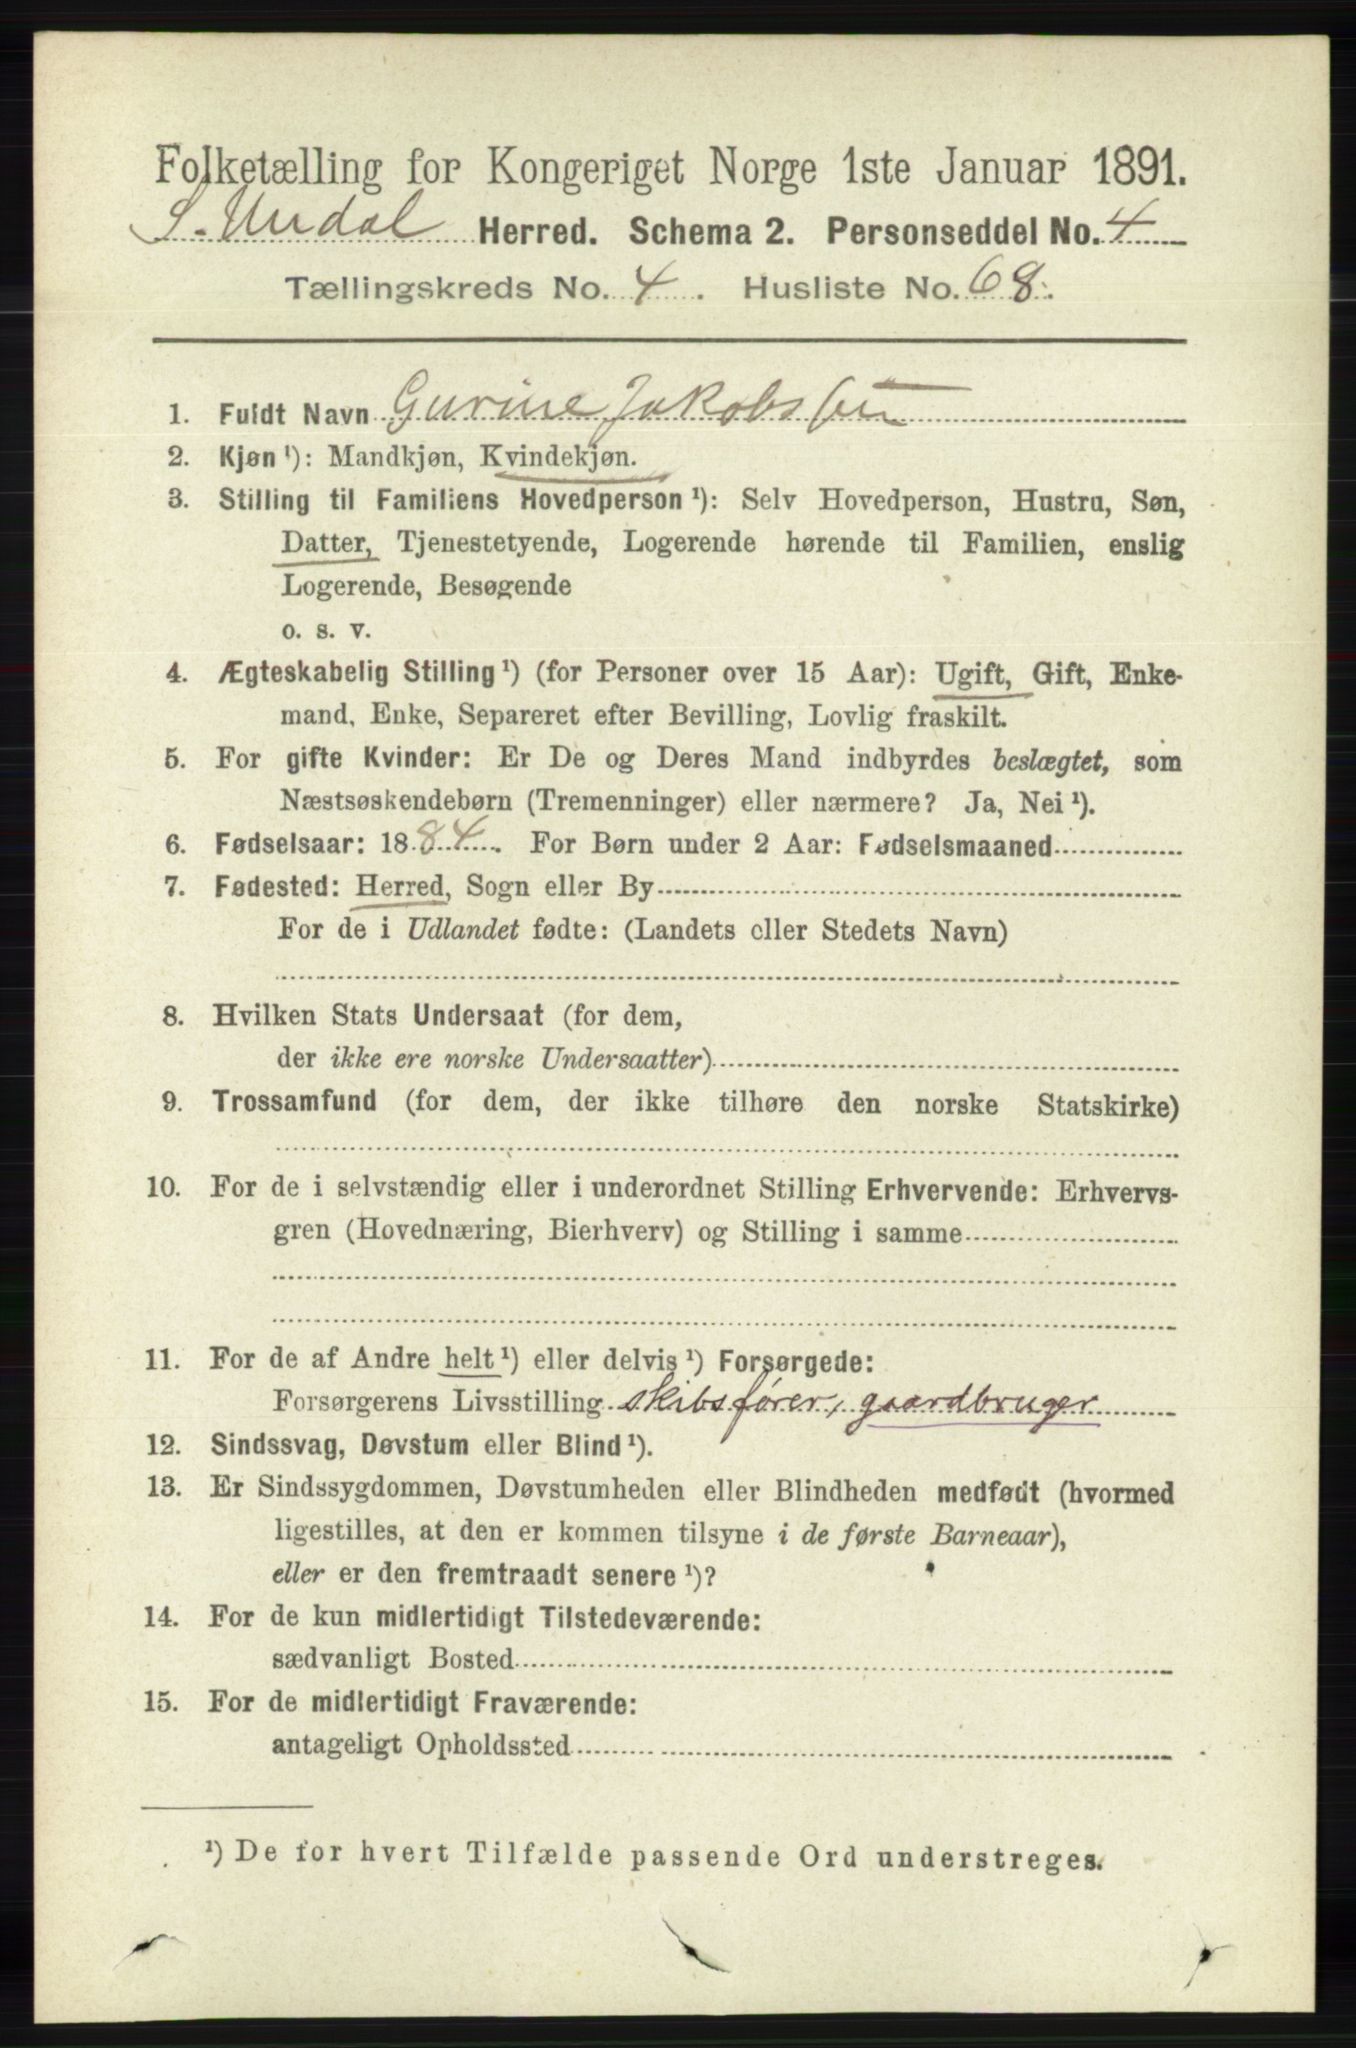 Folketælling for Kongeriget Norge 1ste Januar 1891.
S. Undal Herred. Schema 2. Personseddel No. 4
Tællingskreds No. 4. Husliste No. 68.
1. Fuldt Navn Gurine Jakobsen
2. Kjøn ¹): Mandkjøn, Kvindekjøn.
3. Stilling til Familiens Hovedperson ¹): Selv Hovedperson, Hustru, Søn,
Datter, Tjenestetyende, Logerende hørende til Familien, enslig
Logerende, Besøgende
o. s. v.
4. Ægteskabelig Stilling ¹) (for Personer over 15 Aar): Ugift, Gift, Enke-
mand, Enke, Separeret efter Bevilling, Lovlig fraskilt.
5. For gifte Kvinder: Er De og Deres Mand indbyrdes beslægtet, som
Næstsøskendebørn (Tremenninger) eller nærmere? Ja, Nei ¹).
6. Fødselsaar: 1884. For Børn under 2 Aar: Fødselsmaaned
7. Fødested: Herred, Sogn eller By
For de i Udlandet fødte: (Landets eller Stedets Navn)
8. Hvilken Stats Undersaat (for dem,
der ikke ere norske Undersaatter)
9. Trossamfund (for dem, der ikke tilhøre den norske Statskirke)
10. For de i selvstændig eller i underordnet Stilling Erhvervende: Erhvervs-
gren (Hovednæring, Bierhverv) og Stilling i samme
11. For de af Andre helt ¹) eller delvis ¹) Forsørgede:
Forsørgerens Livsstilling skibsfører, gaardbruger
12. Sindssvag, Døvstum eller Blind ¹).
13. Er Sindssygdommen, Døvstumheden eller Blindheden medfødt (hvormed
ligestilles, at den er kommen tilsyne i de første Barneaar),
eller er den fremtraadt senere ¹)?
14. For de kun midlertidigt Tilstedeværende:
sædvanligt Bosted
15. For de midlertidigt Fraværende:
antageligt Opholdssted
¹) De for hvert Tilfælde passende Ord understreges.